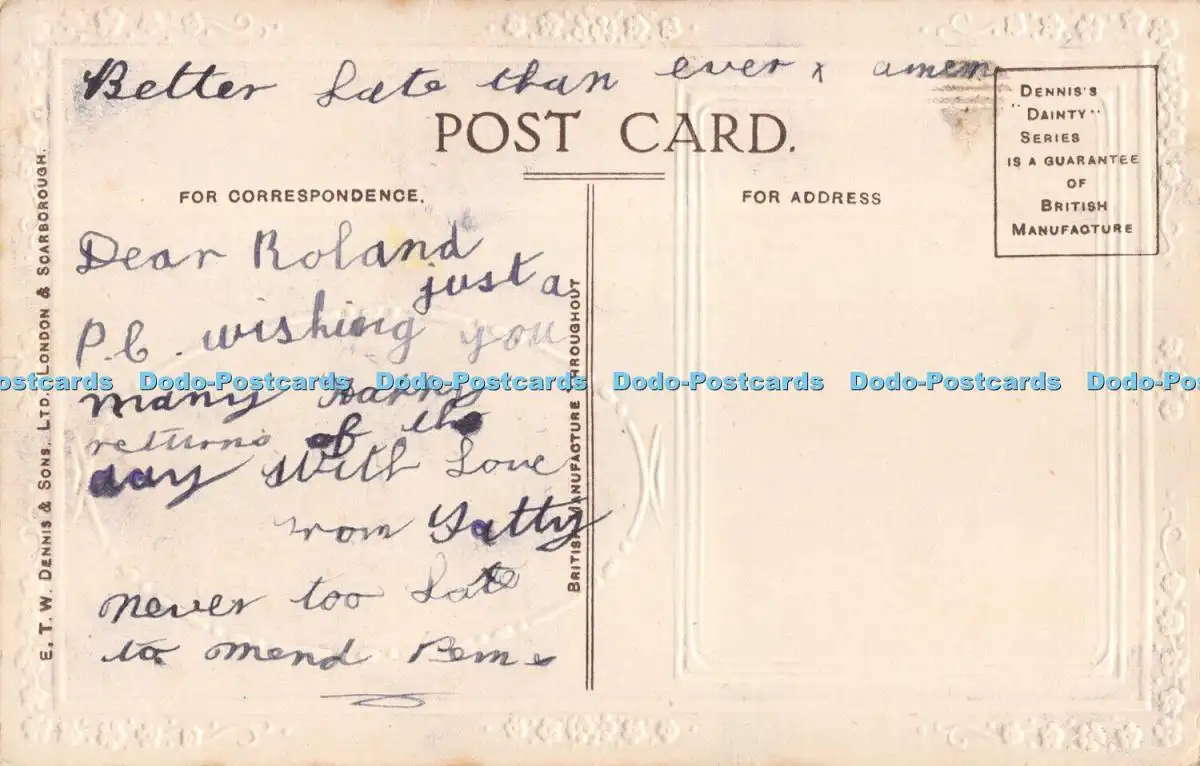 Better late than ever x amen
POST CARD.
FOR CORRESPONDENCE.
FOR ADDRESS
DENNIS'S
"DAINTY"
SERIES
IS A GUARANTEE
OF
BRITISH
MANUFACTURE
E. T. W. DENNIS & SONS. LTD. LONDON & SCARBOROUGH.
Dear Roland
just a
P.C. wishing you
many Happy
returns of the
day with love
from
never too late
to mend
BRITISH MANUFACTURE THROUGHOUT
Dodo-Postcards Dodo-Postcards Dodo-Postcards Dodo-Postcards Dodo-Postcards